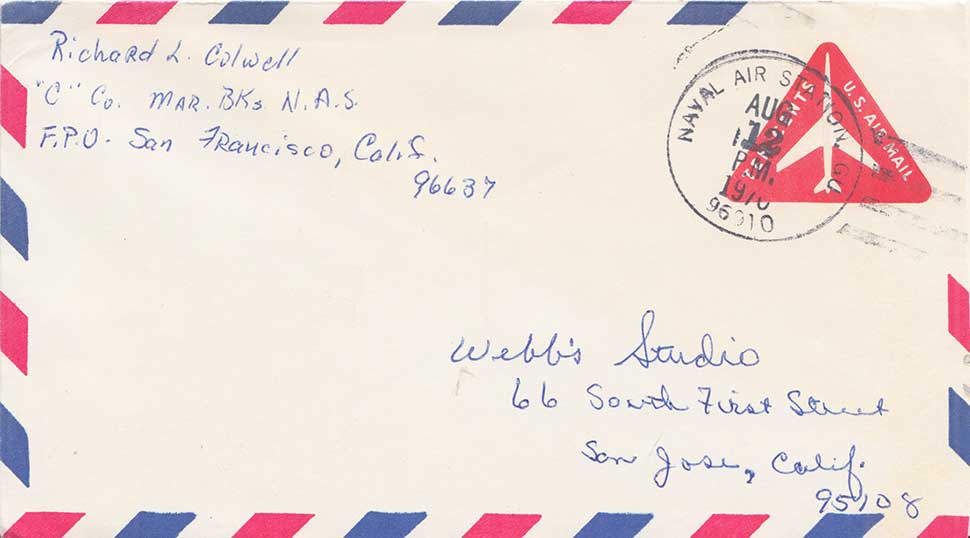 Richard L. Colwell
"C" Co. MAR. BKs N.A.S.
F.P.O. San Francisco, Calif.
96637
NAVAL AIR STATION, GU
AUG
12
P.M.
1970
96910
CENTS
U.S. AIR MAIL
Webb's Studio
66 South First Street
San Jose, Calif.
95108